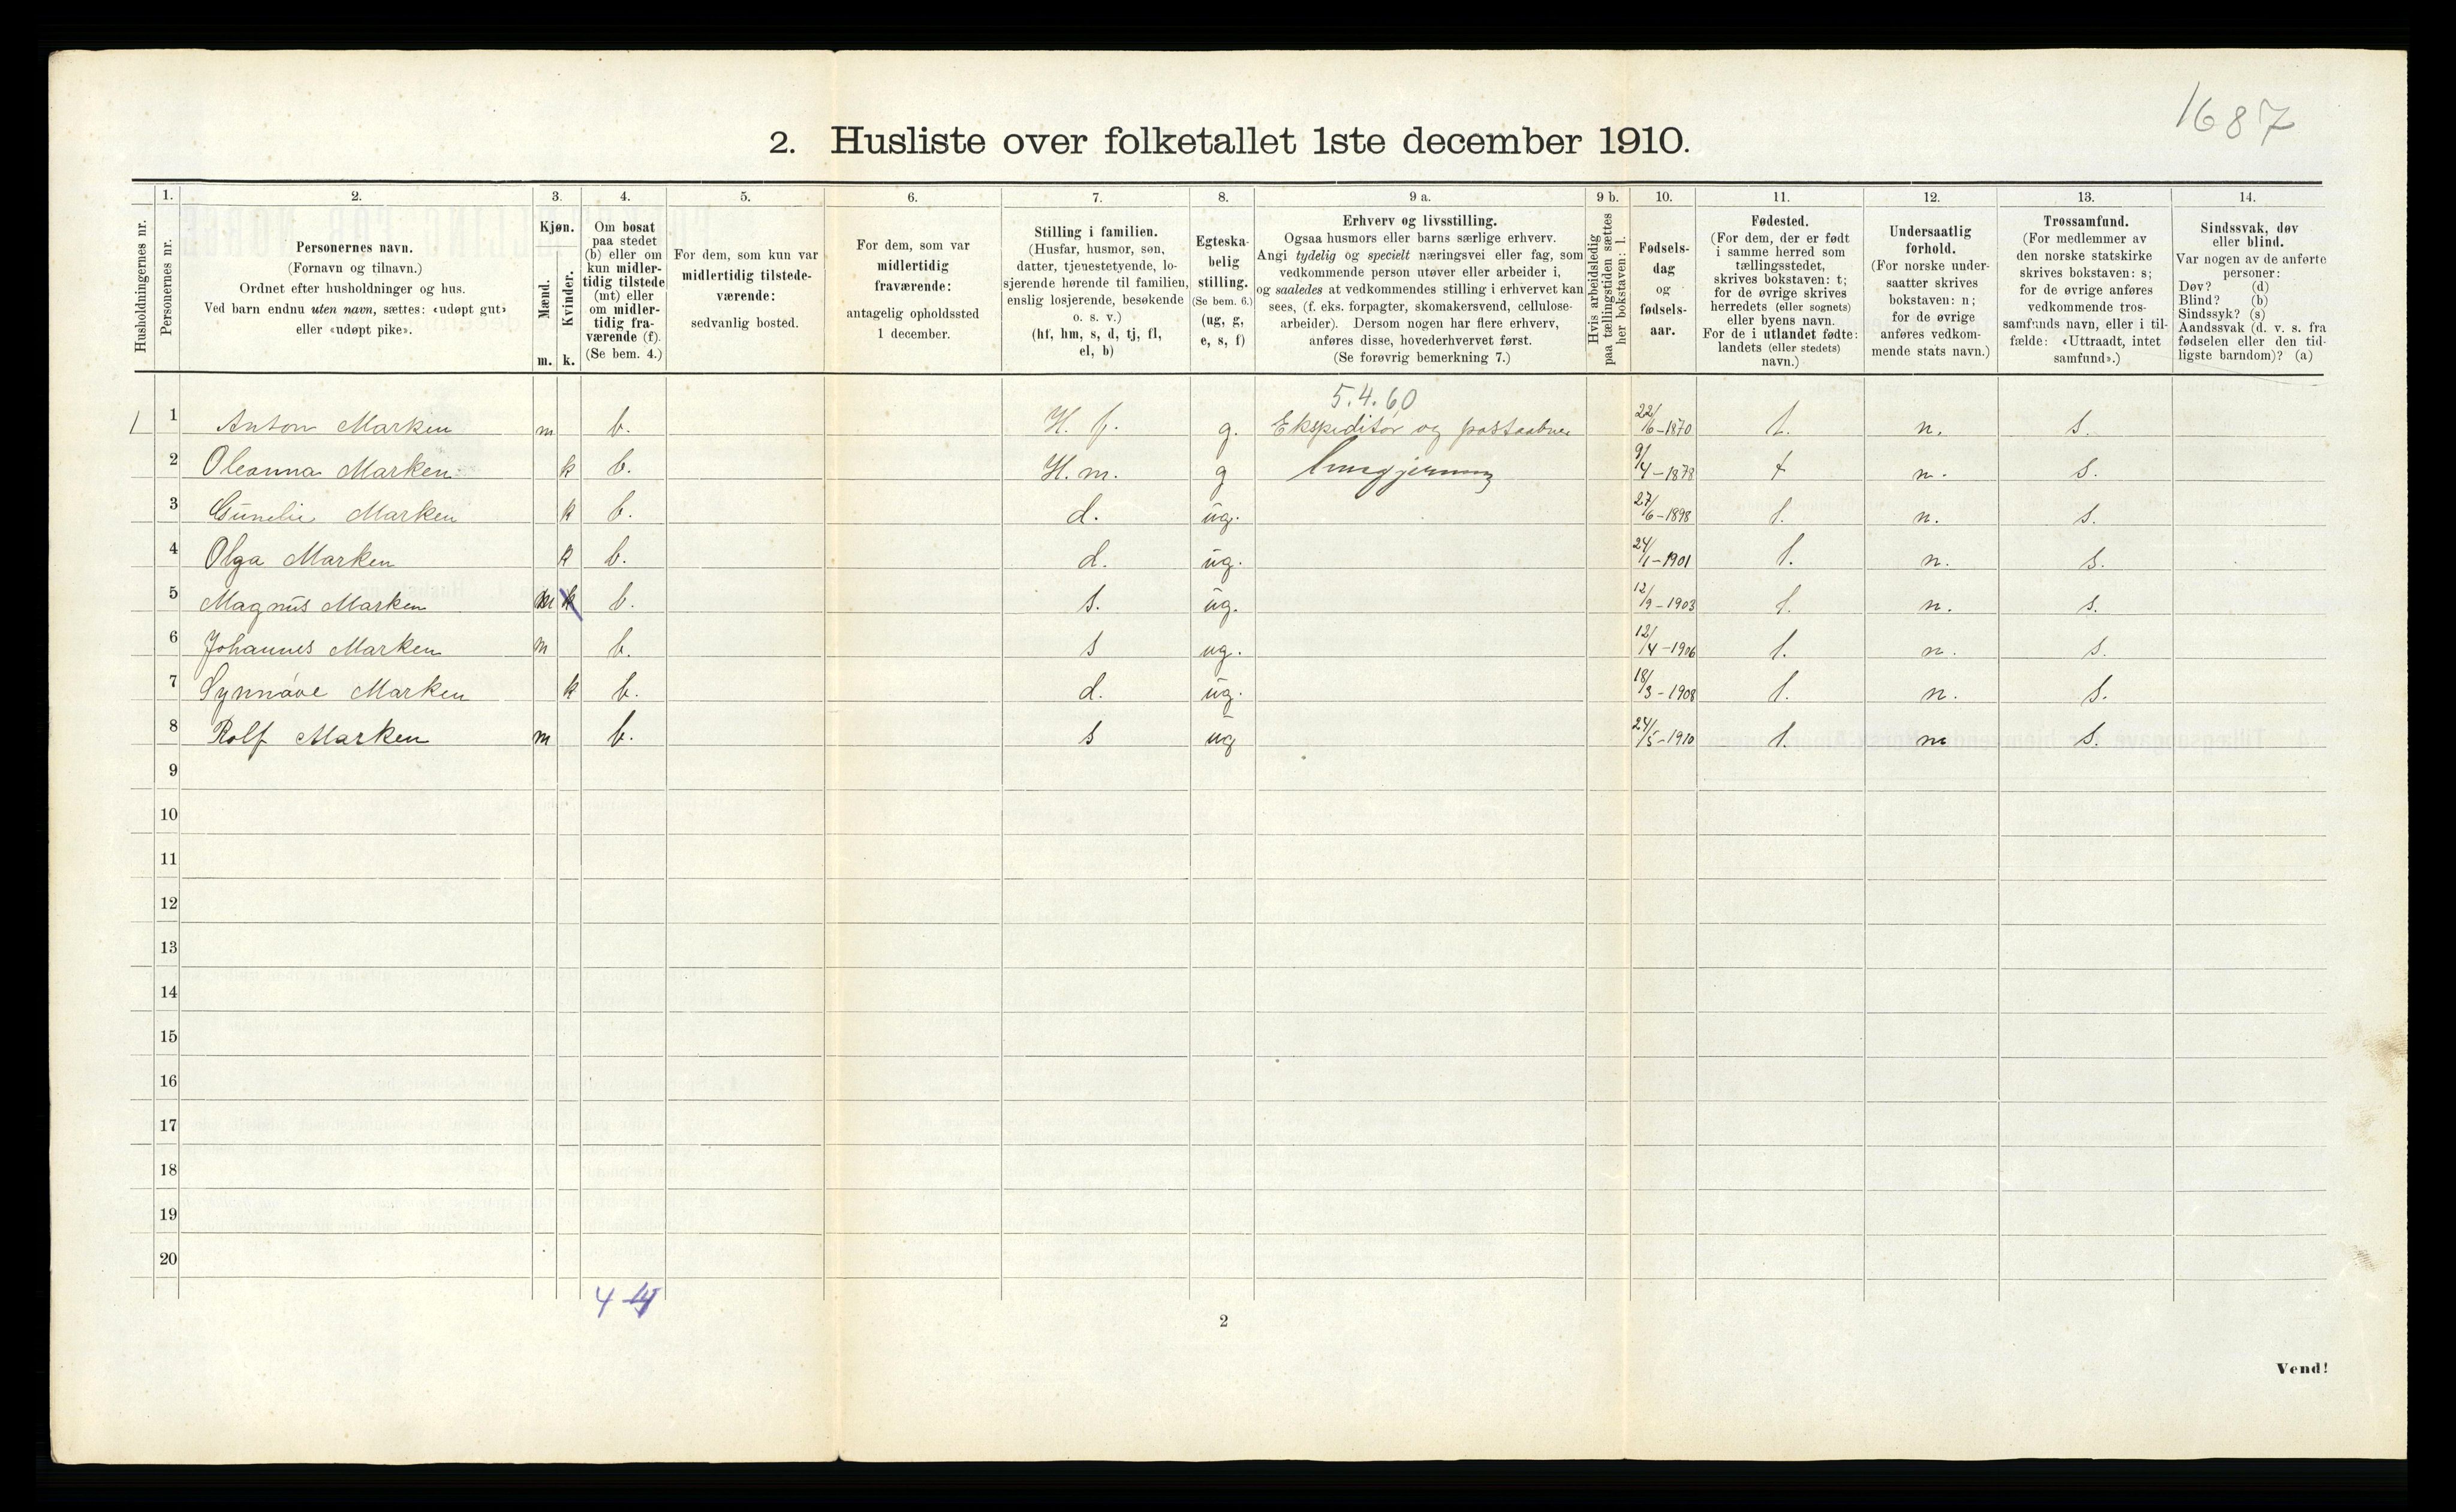 1687
2. Husliste over folketallet 1ste december 1910.
Husholdningernes nr.
1. Personernes nr.
2. Personernes navn. (Fornavn og tilnavn.) Ordnet efter husholdninger og hus. Ved barn endnu uten navn, sættes: «udøpt gut» eller «udøpt pike».
3. Kjøn. Mænd. m. Kvinder. k.
4. Om bosat paa stedet (b) eller om kun midlertidig tilstede (mt) eller om midlertidig fraværende (f). (Se bem. 4.)
5. For dem, som kun var midlertidig tilstedeværende: sedvanlig bosted.
6. For dem, som var midlertidig fraværende: antagelig opholdssted 1 december.
7. Stilling i familien. (Husfar, husmor, søn, datter, tjenestetyende, losjerende hørende til familien, enslig losjerende, besøkende o. s. v.) (hf, hm, s, d, tj, fl, el, b)
8. Egteskabelig stilling. (Se bem. 6.) (ug, g, e, s, f)
9 a. Erhverv og livsstilling. Ogsaa husmors eller barns særlige erhverv. Angi tydelig og specielt næringsvei eller fag, som vedkommende person utøver eller arbeider i, og saaledes at vedkommendes stilling i erhvervet kan sees, (f. eks. forpagter, skomakersvend, cellulosearbeider). Dersom nogen har flere erhverv, anføres disse, hovederhvervet først. (Se forøvrig bemerkning 7.)
9 b. Hvis arbeidsledig paa tællingstiden sættes her bokstaven: l.
10. Fødselsdag og fødselsaar.
11. Fødested. (For dem, der er født i samme herred som tællingsstedet, skrives bokstaven: t; for de øvrige skrives herredets (eller sognets) eller byens navn. For de i utlandet fødte: landets (eller stedets) navn.)
12. Undersaatlig forhold. (For norske undersaatter skrives bokstaven: n; for de øvrige anføres vedkommende stats navn.)
13. Trossamfund. (For medlemmer av den norske statskirke skrives bokstaven: s; for de øvrige anføres vedkommende trossamfunds navn, eller i tilfælde: «Uttraadt, intet samfund».)
14. Sindssvak, døv eller blind. Var nogen av de anførte personer: Døv? (d) Blind? (b) Sindssyk? (s) Aandssvak (d. v. s. fra fødselen eller den tidligste barndom)? (a)
5.4.60
1 1 Anton Marken m b. H. f. g. Ekspeditør og postaabner 22/6-1870 t. n. s.
2 Oleanna Marken k b. H. m. g husgjerning 9/4-1878 t n. s.
3 Gunelie Marken k b. d. ug. 27/6-1898 t. n. s.
4 Olga Marken k b. d. ug. 24/1-1901 t. n. s.
5 Magnus Marken m k b. s. ug. 12/9-1903 t. n. s.
6 Johannes Marken m b. s ug. 12/4-1906 t. n. s.
7 Synnøve Marken k b. d. ug. 18/3-1908 t. n. s.
8 Rolf Marken m b. s ug 24/5-1910 t. n s.
9
10
11
12
13
14
15
16
17
18
19
20
4-4
2
Vend!